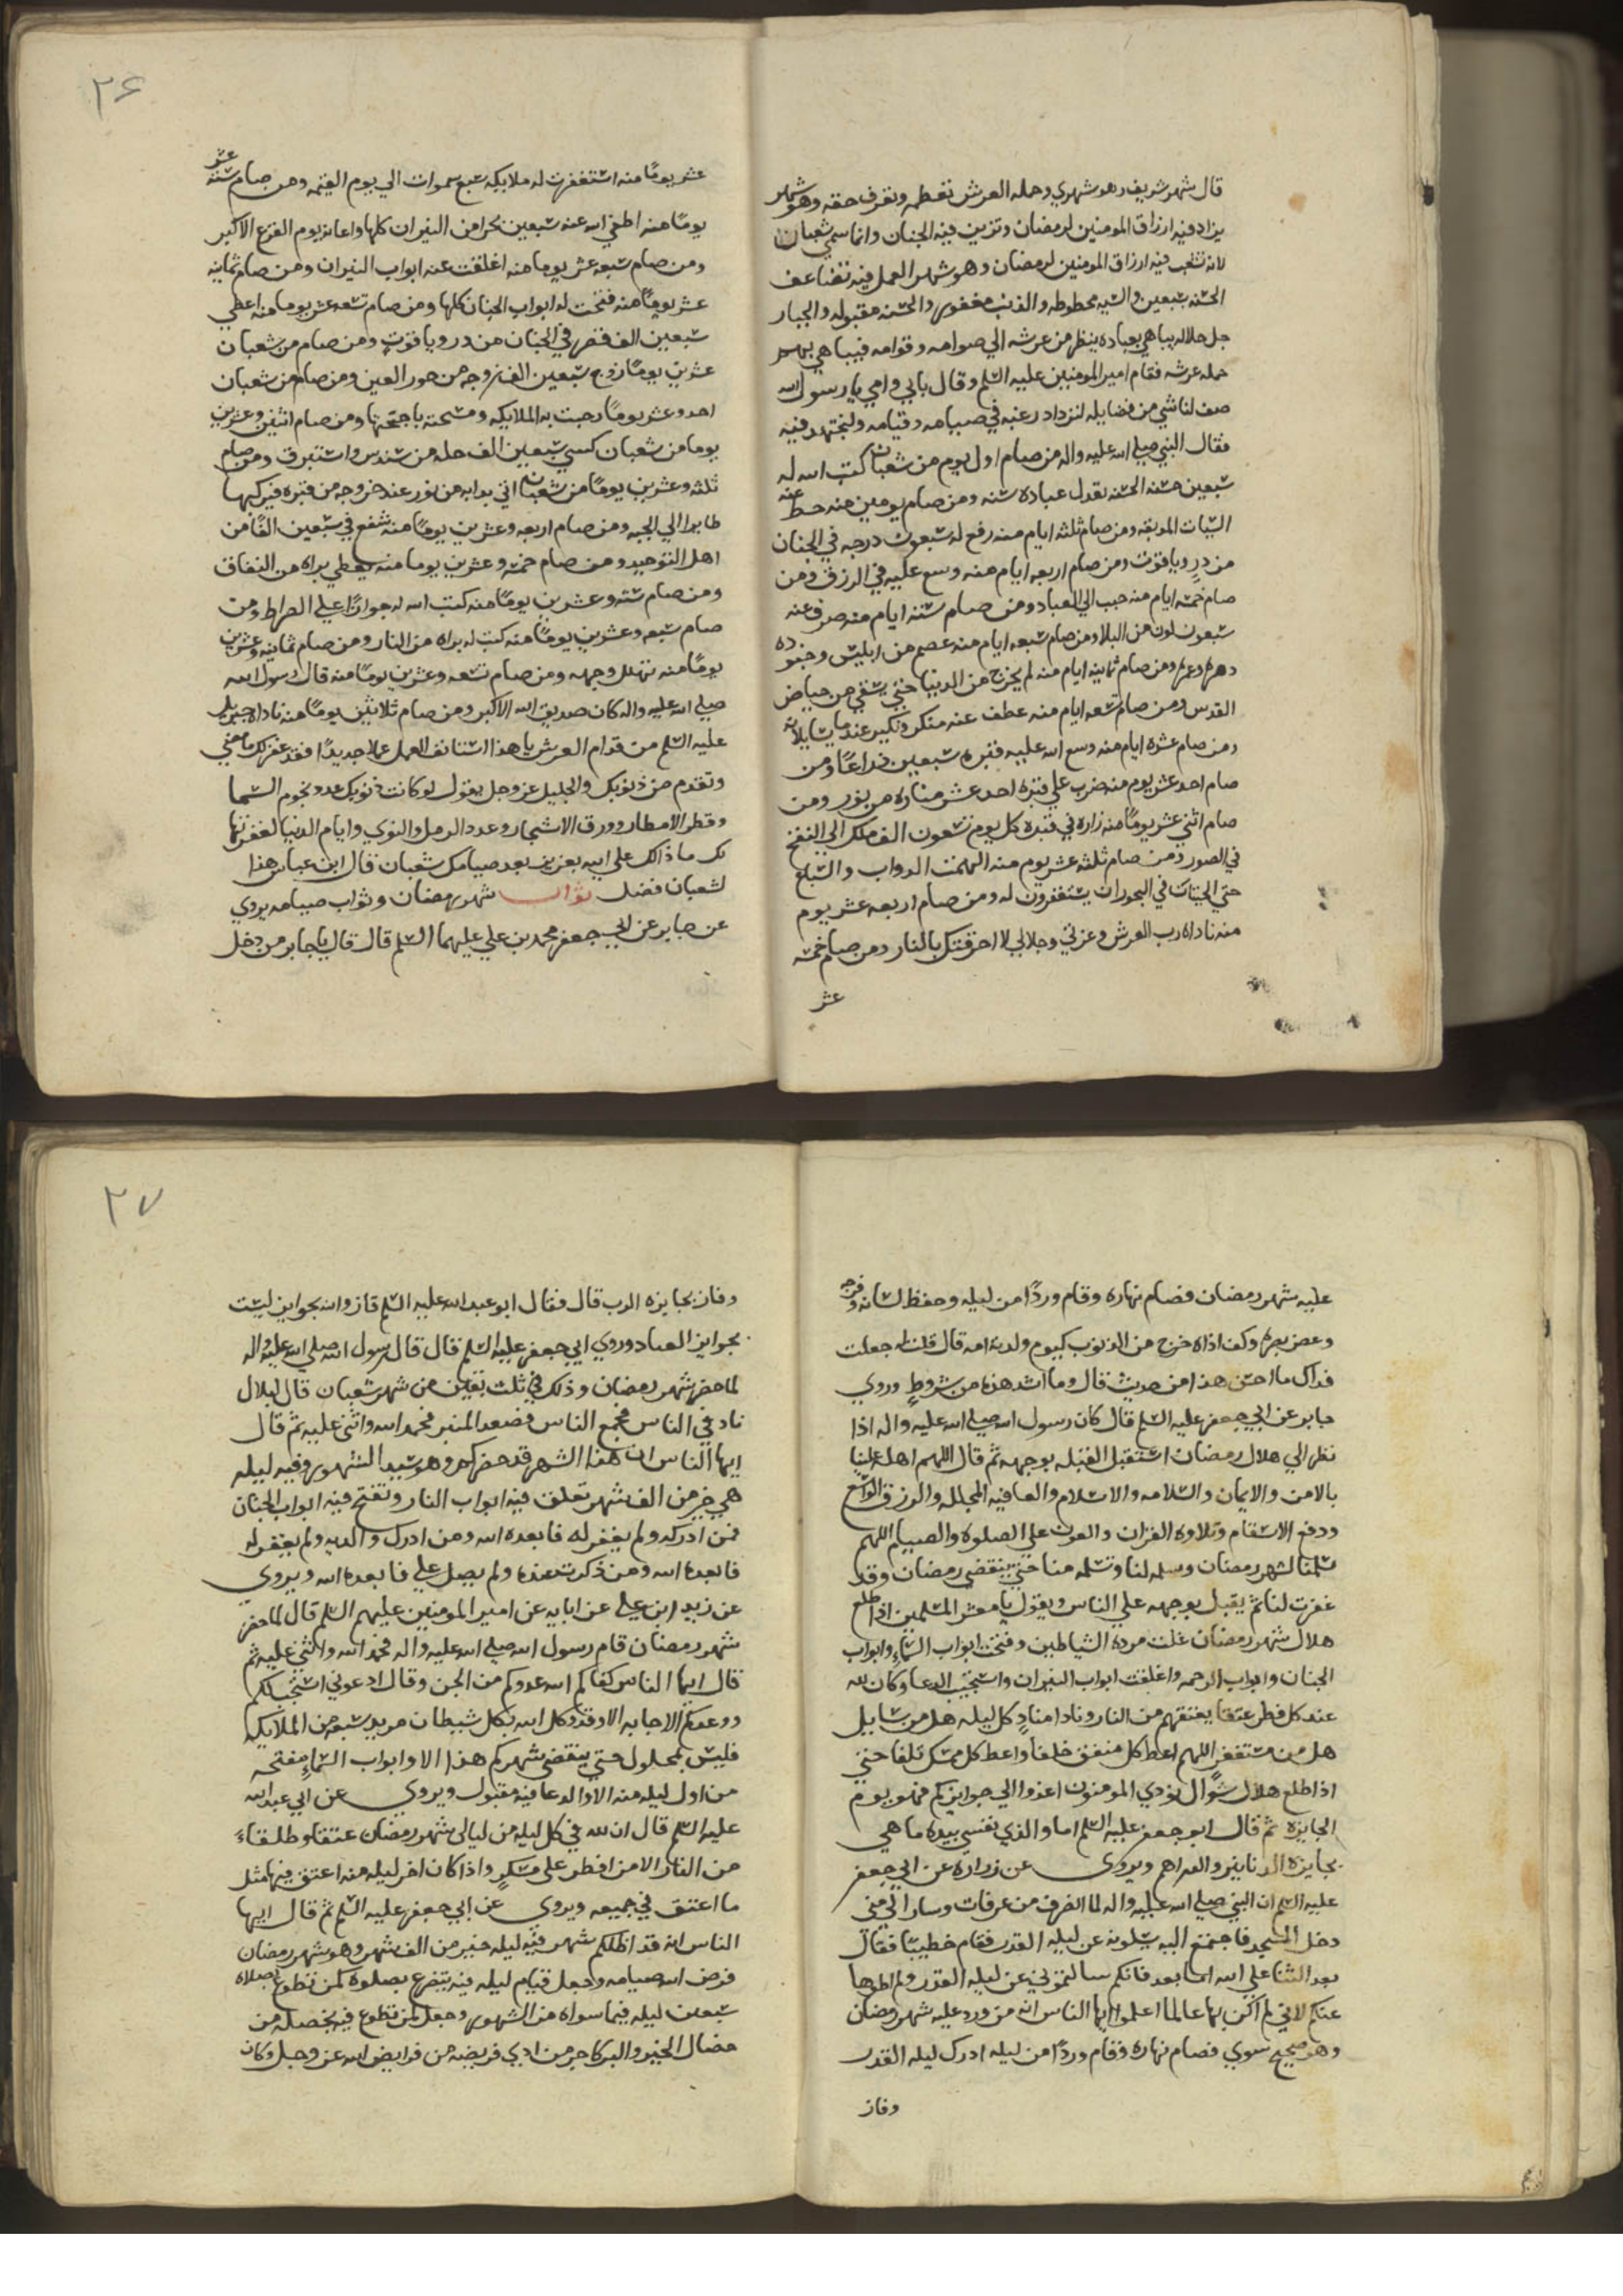 قال شهر شريف وهو شهري وحمله العرش تعظمه وتعرف حقه وهو شهر
يزاد فيه ارزاق المومنين لرمضان وتزين فيه الجنان وانما سمي شعبان
لانه تتشعب فيه ارزاق المومنين لرمضان وهو شهر العمل فيه تضاعف
الحسنه بسبعين والسيه محطوطه والذنب مغفور والحسنه مقبوله والجبار
جل جلاله يباهي بعباده ينظر من عرشه الي صوامه وقوامه فيباهي بهم
حمله عرشه فقام امير المومنين عليه السلم وقال بابي وامي يا رسول الله
صف لنا شي من فضايله لنزداد رغبه في صيامه وقيامه ولنجتهد فيه
فقال النبي صلي الله عليه واله من صام اول يوم من شعبان كتب الله له
سبعين حسنه الحسنه تعدل عباده سنه ومن صام يومين منه حط عنه
السيات الموبقه ومن صام ثلثه ايام منه رفع له سبعون درجه في الجنان
من در وياقوت ومن صام اربعه ايام منه وسع عليه في الرزق ومن
صام خمسه ايام منه حبب الي العباد ومن صام سته ايام منه صرف عنه
سبعون لون من البلا ومن صام سبعه ايام منه عصم من ابليس وجنوده
دهره وعمره ومن صام ثمانيه ايام منه لم يخرج من الدنيا حتي يسقي من حياض
القدس ومن صام تسعه ايام منه عطف عنه منكر ونكير عند ما يسايلانه
ومن صام عشره ايام منه وسع الله عليه قبره سبعين ذراعًا ومن
صام احد عشر يوم منه ضرب علي قبره احد عشر مناره من نور ومن
صام اثني عشر يومًا منه زاره في قبره كل يوم تسعون الف ملك الي النفخ
في الصور ومن صام ثلثه عشر يوم منه الهمت الدواب والسباع
حتي الحيتان في البحور ان يستغفرون له ومن صام اربعه عشر يوم
منه ناداه رب العرش وعزتي وجلالي لا احرقتك بالنار ومن صام خمسه
عشر
٢٦
عشر يومًا منه استغفرت له ملايكه سبع سموات الي يوم القيمه ومن صام سته عشر
يومًا منه اطفي الله عنه سبعين بحرا من النيران كلها واعاذه يوم الفزع الاكبر
ومن صام سبعه عشر يوما منه اغلقت عنه ابواب النيران ومن صام ثمانيه
عشر يومًا منه فتحت له ابواب الجنان كلها ومن صام تسعه عشر يوما منه اعطي
سبعين الف قصر في الجنان من در وياقوت ومن صام من شعبان
عشرين يومًا زوج سبعين الف زوجه من حور العين ومن صام من شعبان
احد وعشر يومًا رحبت به الملايكه ومسحته باجنحتها ومن صام اثنين وعشرين
يوما من شعبان كسي سبعين الف حله من سندس واستبرق ومن صام
ثلثه وعشرين يومًا من شعبان اتي بدابه من نور عند خروجه من قبره فيركبها
طايرا الي الجنه ومن صام اربعه وعشرين يومًا منه شفع في سبعين الفًا من
اهل التوحيد ومن صام خمسه وعشرين يوما منه يعطي براه من النفاق
ومن صام سته وعشرين يومًا منه كتب الله له جوازًا علي الصراط ومن
صام سبعه وعشرين يومًا منه كتب له براه من النار ومن صام ثمانيه وعشرين
يومًا منه تهلل وجهه ومن صام تسعه وعشرين يومًا منه قال رسول الله
صلي الله عليه واله كان صديق الله الاكبر ومن صام ثلاثين يومًا منه ناداه جبريل
عليه السلم من قدام العرش يا هذا استانف العمل عملا جديدًا فقد غفر لك ما مضي
وتقدم من ذنوبك والجليل عز وجل يقول لو كانت ذنوبك عدد نجوم السما
وقطر الامطار وورق الاشجار وعدد الرمل والنوي وايام الدنيا لغفرتها
لك ما ذالك علي الله بعزيز بعد صيامك شعبان قال ابن عباس هذا
لشعبان فضل ثواب شهر رمضان وثواب صيامه يروي
عن جابر عن ابي جعفر محمد بن علي عليهما السلم قال قال يا جابر من دخل
عليه شهر رمضان فصام نهاره وقام وردًا من ليله وحفظ لسانه وفرجه
وغض بصره وكف اذاه خرج من الذنوب كيوم ولدته امه قال قلت له جعلت
فداك ما احسن هذا من حديث قال وما اشد هذا من شروط وروي
جابر عن ابي جعفر عليه السلم قال كان رسول الله صلي الله عليه واله اذا
نظر الي هلال رمضان استقبل القبله بوجهه ثم قال اللهم اهله علينا
بالامن والايمان والسلامه والاسلام والعافيه المجلله والرزق الواسع
ودفع الاسقام وتلاوه القران والعون علي الصلوه والصيام اللهم
سلمنا لشهر رمضان وسلمه لنا وتسلمه منا حتي ينقضي رمضان وقد
غفرت لنا ثم يقبل بوجهه علي الناس ويقول يا معشر المسلمين اذا طلع
هلال شهر رمضان غلت مرده الشياطين وفتحت ابواب السماء وابواب
الجنان وابواب الرحمه واغلقت ابواب النيران واستجيب الدعا وكان لله
عند كل فطر عتقا يعتقهم من النار ونادا منادٍ كل ليله هل من سايل
هل من مستغفر اللهم اعط كل منفق خلفا واعط كل ممسك تلفا حتي
اذا طلع هلال شوال نودي المومنون اغدوا الي جوايزكم فهو يوم
الجايزه ثم قال ابو جعفر عليه السلم اما والذي نفسي بيده ما هي
بجايزه الدنانير والدراهم ويروي عن زراره عن ابي جعفر
عليه السلم ان النبي صلي الله عليه واله لما انصرف من عرفات وسار الي مني
دخل المسجد فاجتمع اليه يسلونه عن ليله القدر فقام خطيبًا فقال
بعد الثنا علي الله اما بعد فانكم سالتموني عن ليله القدر ولم اطوها
عنكم لاني لم اكن بها عالما اعلموا ايها الناس انه من ورد عليه شهر رمضان
وهو صحيح سوي فصام نهاره وقام وردًا من ليله ادرك ليله القدر
وفاز
٢٧
وفاز بجايزه الرب قال فقال ابو عبد الله عليه السلم فاز والله بجوايز ليست
بجوايز العباد وروي ابي جعفر عليه السلم قال قال رسول الله صلي الله عليه واله
لما حضر شهر رمضان وذلك في ثلث بقين من شهر شعبان قال لبلال
ناد في الناس فجمع الناس فصعد المنبر فحمد الله واثني عليه ثم قال
ايها الناس ان هذا الشهر قد حضركم وهو سيد الشهور وفيه ليله
هي خير من الف شهر تغلق فيه ابواب النار وتفتح فيه ابواب الجنان
فمن ادركه ولم يغفر له فابعده الله ومن ادرك والديه ولم يغفر له
فابعده الله ومن ذكرت عنده ولم يصل علي فابعده الله ويروي
عن زيد ابن علي عن ابايه عن امير المومنين عليهم السلم قال لما حضر
شهر رمضان قام رسول الله صلي الله عليه واله فحمد الله واثني عليه ثم
قال ايها الناس كفاكم الله عدوكم من الجن وقال ادعوني استجب لكم
ووعدكم الاجابه الا وقد وكل الله بكل شيطان مريد سبعه من الملايكه
فليس بمحلول حتي ينقضي شهركم هذا الا وابواب السماء مفتحه
من اول ليله منه الا والدعا فيه مقبول ويروي عن ابي عبد الله
عليه السلم قال ان لله في كل ليله من ليالي شهر رمضان عتقا وطلقاء
من النار الا من افطر علي مسكر واذا كان اخر ليله منه اعتق فيها مثل
ما اعتق في جميعه ويروي عن ابي جعفر عليه السلم ثم قال ايها
الناس انه قد اظلكم شهر فيه ليله خير من الف شهر وهو شهر رمضان
فرض الله صيامه وجعل قيام ليله فيه بتضرع بصلوه كمن تطوع بصلاه
سبعين ليله فيما سواه من الشهور وجعل لمن تطوع فيه بخصله من
خصال الخير والبر كاجر من ادي فريضه من فرايض الله عز وجل وكان